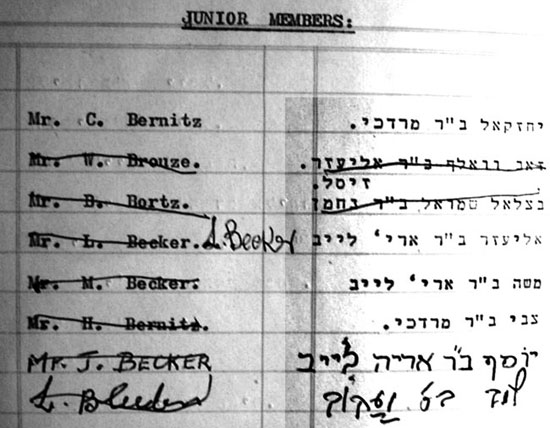 JUNIOR MEMBERS:
Mr. C. Bernitz יחזקאל ב"ר מרדכי.
Mr. W. Brouze. זאב וואלף ב"ר אליעזר.
זיסל.
Mr. B. Bortz. בצלאל שמואל ב"ר נחמן
Mr. L. Becker. L. Becker אליעזר ב"ר ארי' לייב
Mr. M. Becker. משה ב"ר ארי' לייב
Mr. H. Bernitz. צבי ב"ר מרדכי.
MR. J. BECKER יוסף ב"ר אריה לייב